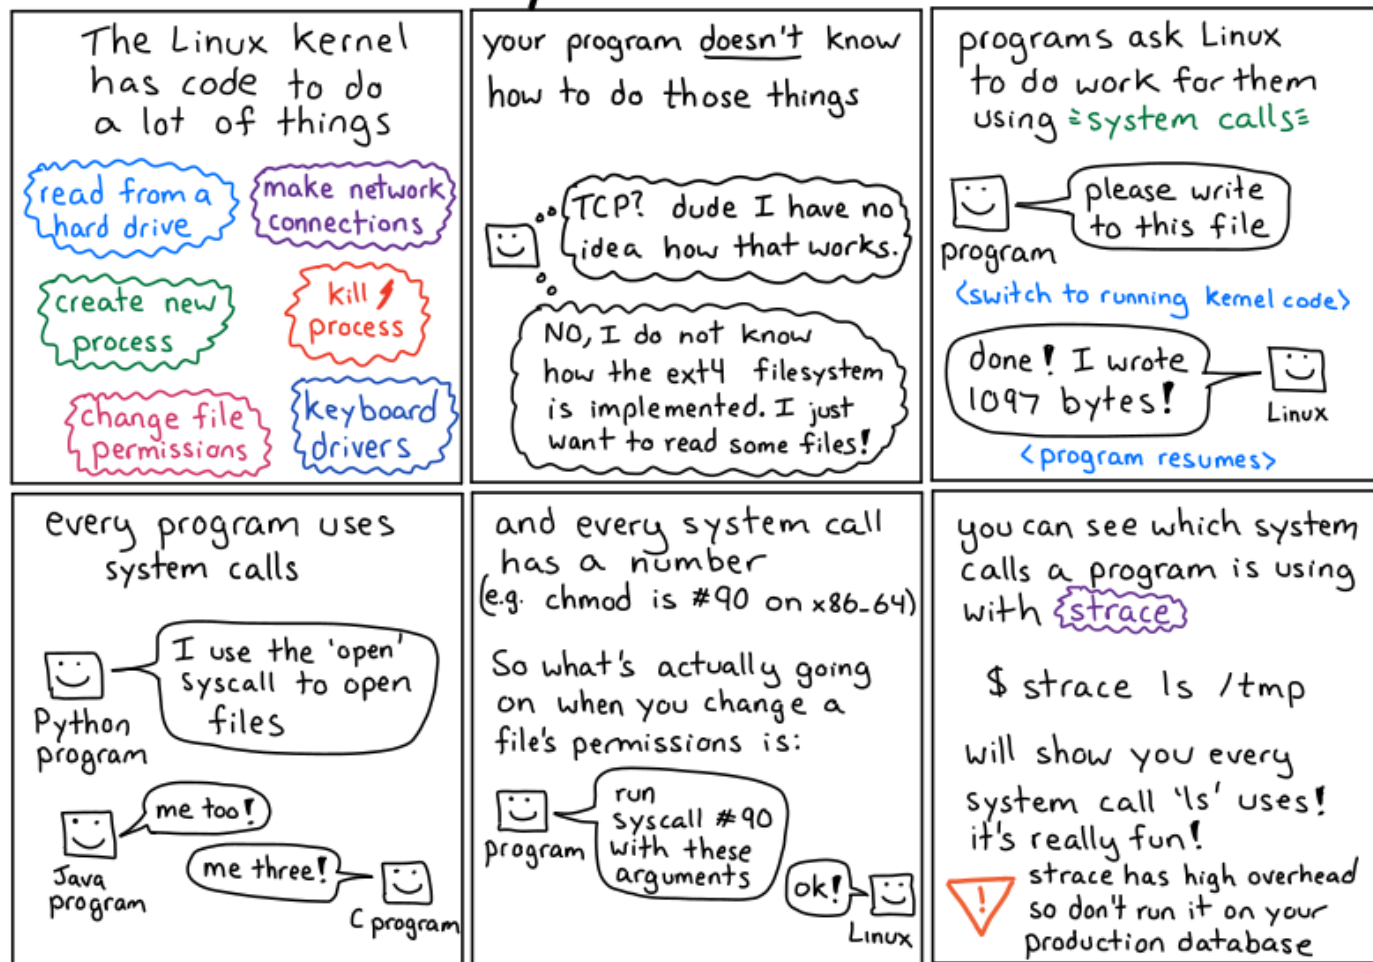 The Linux kernel
has code to do
a lot of things
read from a
hard drive
make network
connections
create new
process
kill
process
change file
permissions
keyboard
drivers
your program doesn't know
how to do those things
TCP? dude I have no
idea how that works.
NO, I do not know
how the ext4 filesystem
is implemented. I just
want to read some files!
programs ask Linux
to do work for them
using system calls
please write
to this file
program
<switch to running kernel code>
done! I wrote
1097 bytes!
Linux
<program resumes>
every program uses
system calls
I use the 'open'
syscall to open
files
Python
program
me too!
Java
program
me three!
C program
and every system call
has a number
(e.g. chmod is #90 on x86-64)
So what's actually going
on when you change a
file's permissions is:
run
syscall #90
with these
arguments
program
ok!
Linux
you can see which system
calls a program is using
with strace
$ strace ls /tmp
will show you every
system call 'ls' uses!
it's really fun!
!
strace has high overhead
so don't run it on your
production database